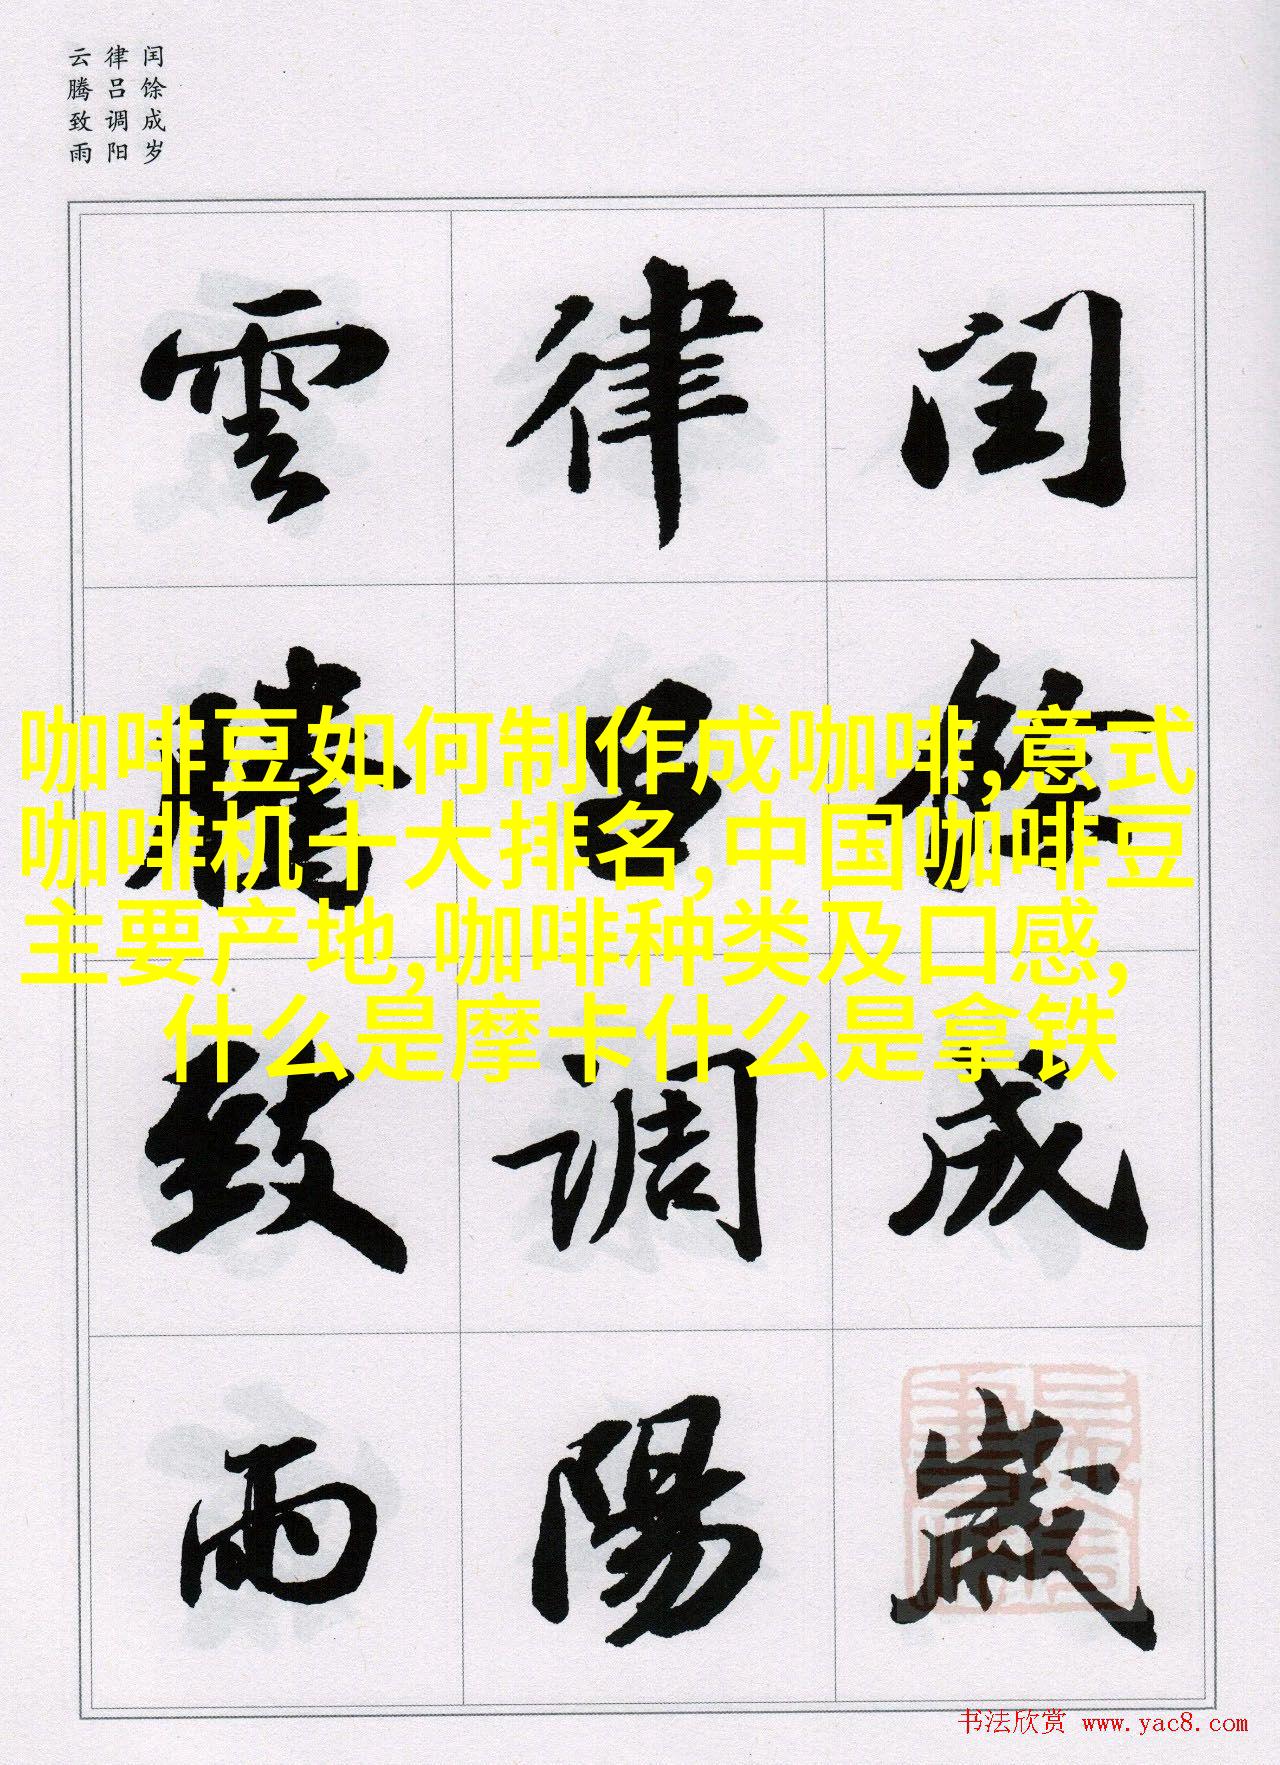 闰馀成岁
律吕调阳
云腾致雨
閏餘成歲
律呂調陽
雲騰致雨
咖啡豆如何制作成咖啡,意式
咖啡机十大排名,中国咖啡豆
主要产地,咖啡种类及口感,
什么是摩卡什么是拿铁
书法欣赏 www.yac8.com